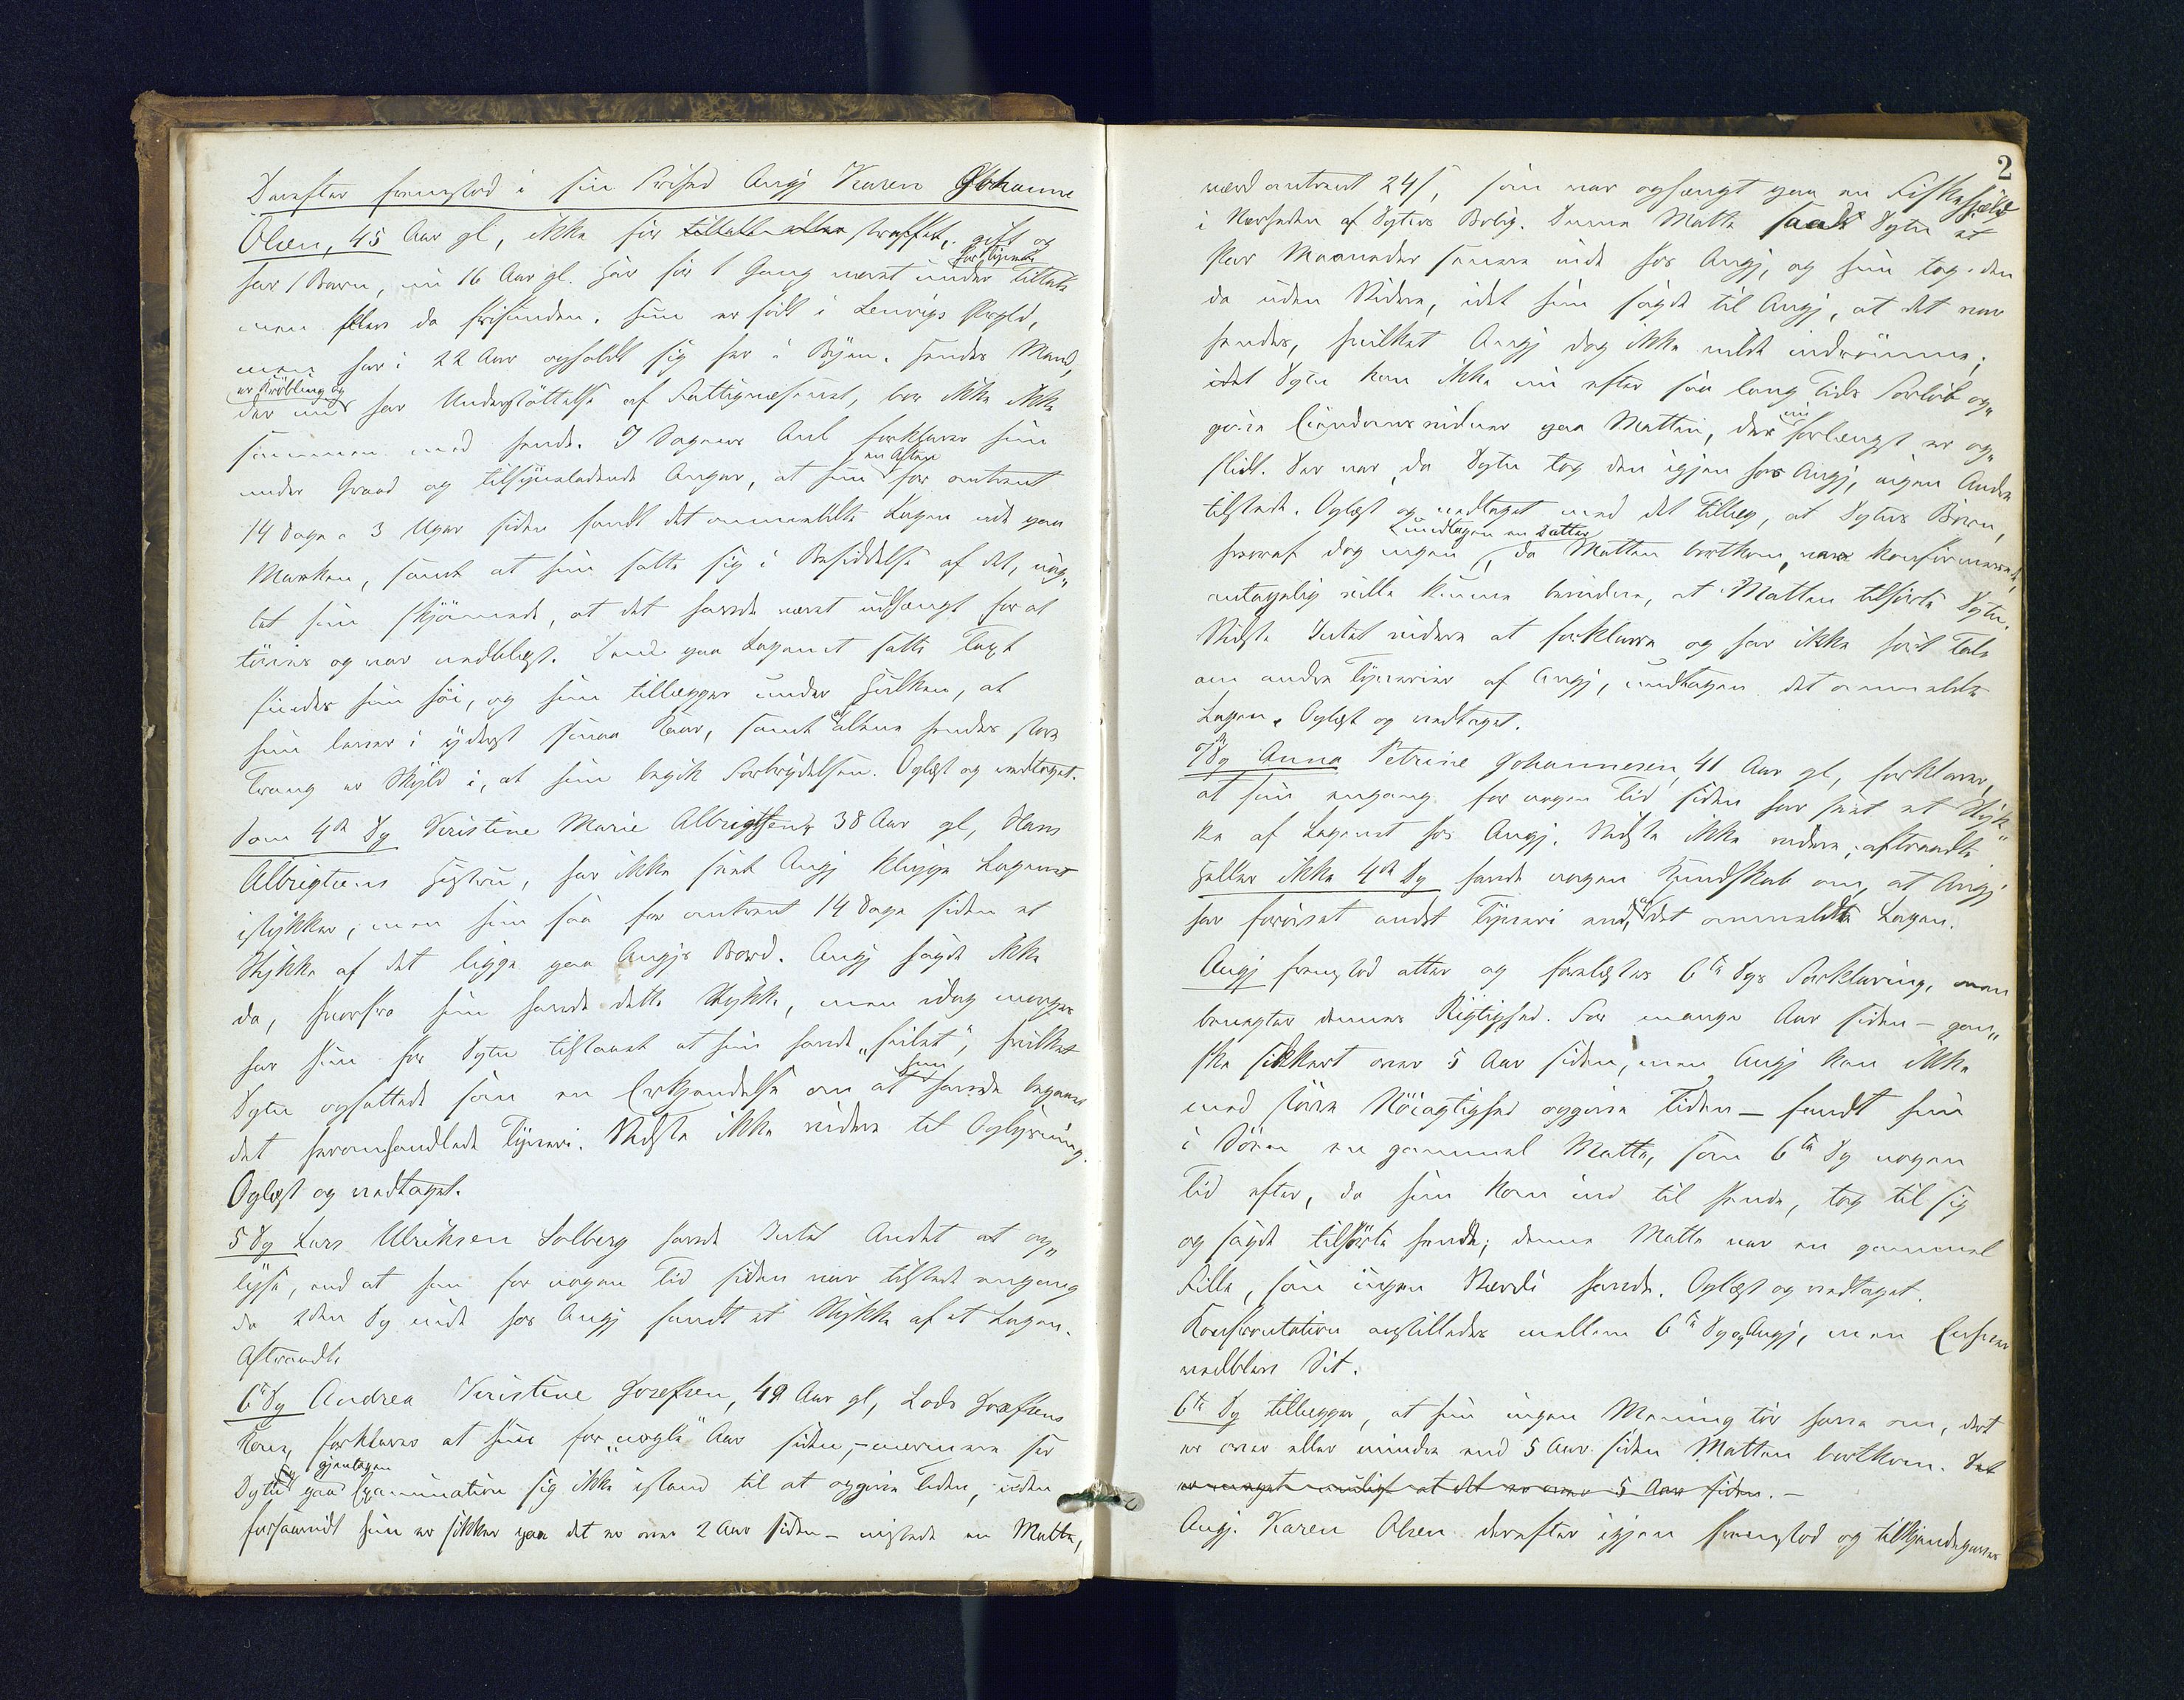 Derefter fremstod i sin Frihed Angj Karen Johanne
Olsen, 45 Aar gl, ikke før tiltalt eller straffet, gift og
har 1 Barn, nu 16 Aar gl. Har før 1 Gang været under Tiltale
for Tyveri
men blev da frifunden. Hun er født i Lenvigs Prægld,
men har i 22 Aar opholdt sig her i Byen. Hendes Mand,
er Krøbling og
der har Understøttelse af Fattigvæsenet, bor ikke
sammen med hende. I Sagens Anl forklarer hun
under Graad og tilsyneladende Anger, at hun for omtrent
en Aften
14 Dage a 3 Uger siden fandt det ommeldte Lagen ude paa
Marken, samt at hun satte sig i Besiddelse af det, uag„
tet hun skjønnede, at det havde været udhængt for at
tørres og var nedblæst. Den paa Lagenet satte Taxt
finder hun høi, og hun tillægger under Hulken, at
hun lever i yderst smaa Kaar, samt at alene hendes store
Trang er Skyld i, at hun begik Forbrydelsen. Oplæst og vedtaget.
Som 4de Vg Kristine Marie Albrigtsen, 38 Aar gl, Hans
Albrigtsens Hustru, har ikke seet Angj klippe Lagenet
istykker, men hun saa for omtrent 14 Dage siden et
Stykke af det ligge paa Angjs Bord. Angj sagde ikke
da, hvorfra hun havde dette Stykke, men idag morges
har hun for Vgtu tilstaaet at hun havde „feilet“, hvilket
Vgtu opfattede som en Erkjendelse om at hun havde begaaet
det heromhandlede Tyveri. Vidste ikke videre til Oplysning.
Oplæst og vedtaget.
5 Vg Lars Ulriksen Solberg havde Intet Andet at op„
lyse, end at han for nogen Tid siden var tilstede engang
da 2den Vg inde hos Angj fandt et Stykke af et Lagen.
Aftraadte
6te Vg Andrea Kristine Josefsen, 49 Aar gl, Lods Josefsens
Kone, forklarer at hun for „nogle“ Aar siden, – nærmere ser
Vgtu paa Examination sig ikke istand til at opgive Tiden, uden
gjentagen
forsaavidt hun er sikker paa det er over 2 Aar siden – mistede en Matte,
2
værd omtrent 24 s, som var ophængt paa en Fiskehjeld
i Nærheden af Vgtus Bolig. Denne Matte saa Vgtu et
Par Maaneder senere inde hos Angj, og hun tog den
da uden Videre, idet hun sagde til Angj, at det var
hendes, hvilket Angj dog ikke vilde indrømme;
idet Vgtu kan ikke nu efter saa lang Tids Forløb op„
give Eiendomsvidner paa Matten, der nu forlængst er op„
slidt. Der var, da Vgtu tog den igjen hos Angj, ingen Andre
tilstede. Oplæst og vedtaget med det Tillæg, at Vgtus Børn,
undtagen en Datter
hvoraf dog ingen, da Matten bortkom, var konfirmerede,
antagelig ville kunne bevidne, at Matten tilhørte Vgtu.
Vidste Intet videre at forklare og har ikke hørt Tale
om andre Tyverier af Angj, undtagen det ommeldte
Lagen. Oplæst og vedtaget.
7de Vg Anna Petrine Johannesen, 41 Aar gl, forklarer,
at hun engang for nogen Tid siden har seet et Styk„
ke af Lagenet hos Angj. Vidste ikke videre; aftraadte
Heller ikke 4de Vg havde nogen Kundskab om, at Angj
har forøvet andet Tyveri end af det ommeldte Lagen.
Angj fremstod atter og forelæstes 6te Vgs Forklaring, men
benegter dennes Rigtighed. For mange Aar siden – gan„
ske sikkert over 5 Aar siden, men Angj kan ikke
med større Nøiagtighed opgive Tiden – fandt hun
i Søen en gammel Matte, som 6te Vg nogen
Tid efter, da hun kom ind til hende, tog til sig
og sagde tilhørte hende; denne Matte var en gammel
Fille, som ingen Værdi havde. Oplæst og vedtaget.
Konfrontation anstilledes mellem 6te Vg og Angj, men Enhver
vedblev Sit.
6te Vg tillægger, at hun ingen Mening tør have om, det
er over eller mindre end 5 Aar siden Matten bortkom. Det
er meget muligt at det er over 5 Aar siden. –
Angj. Karen Olsen derefter igjen fremstod og tilkjendegaves